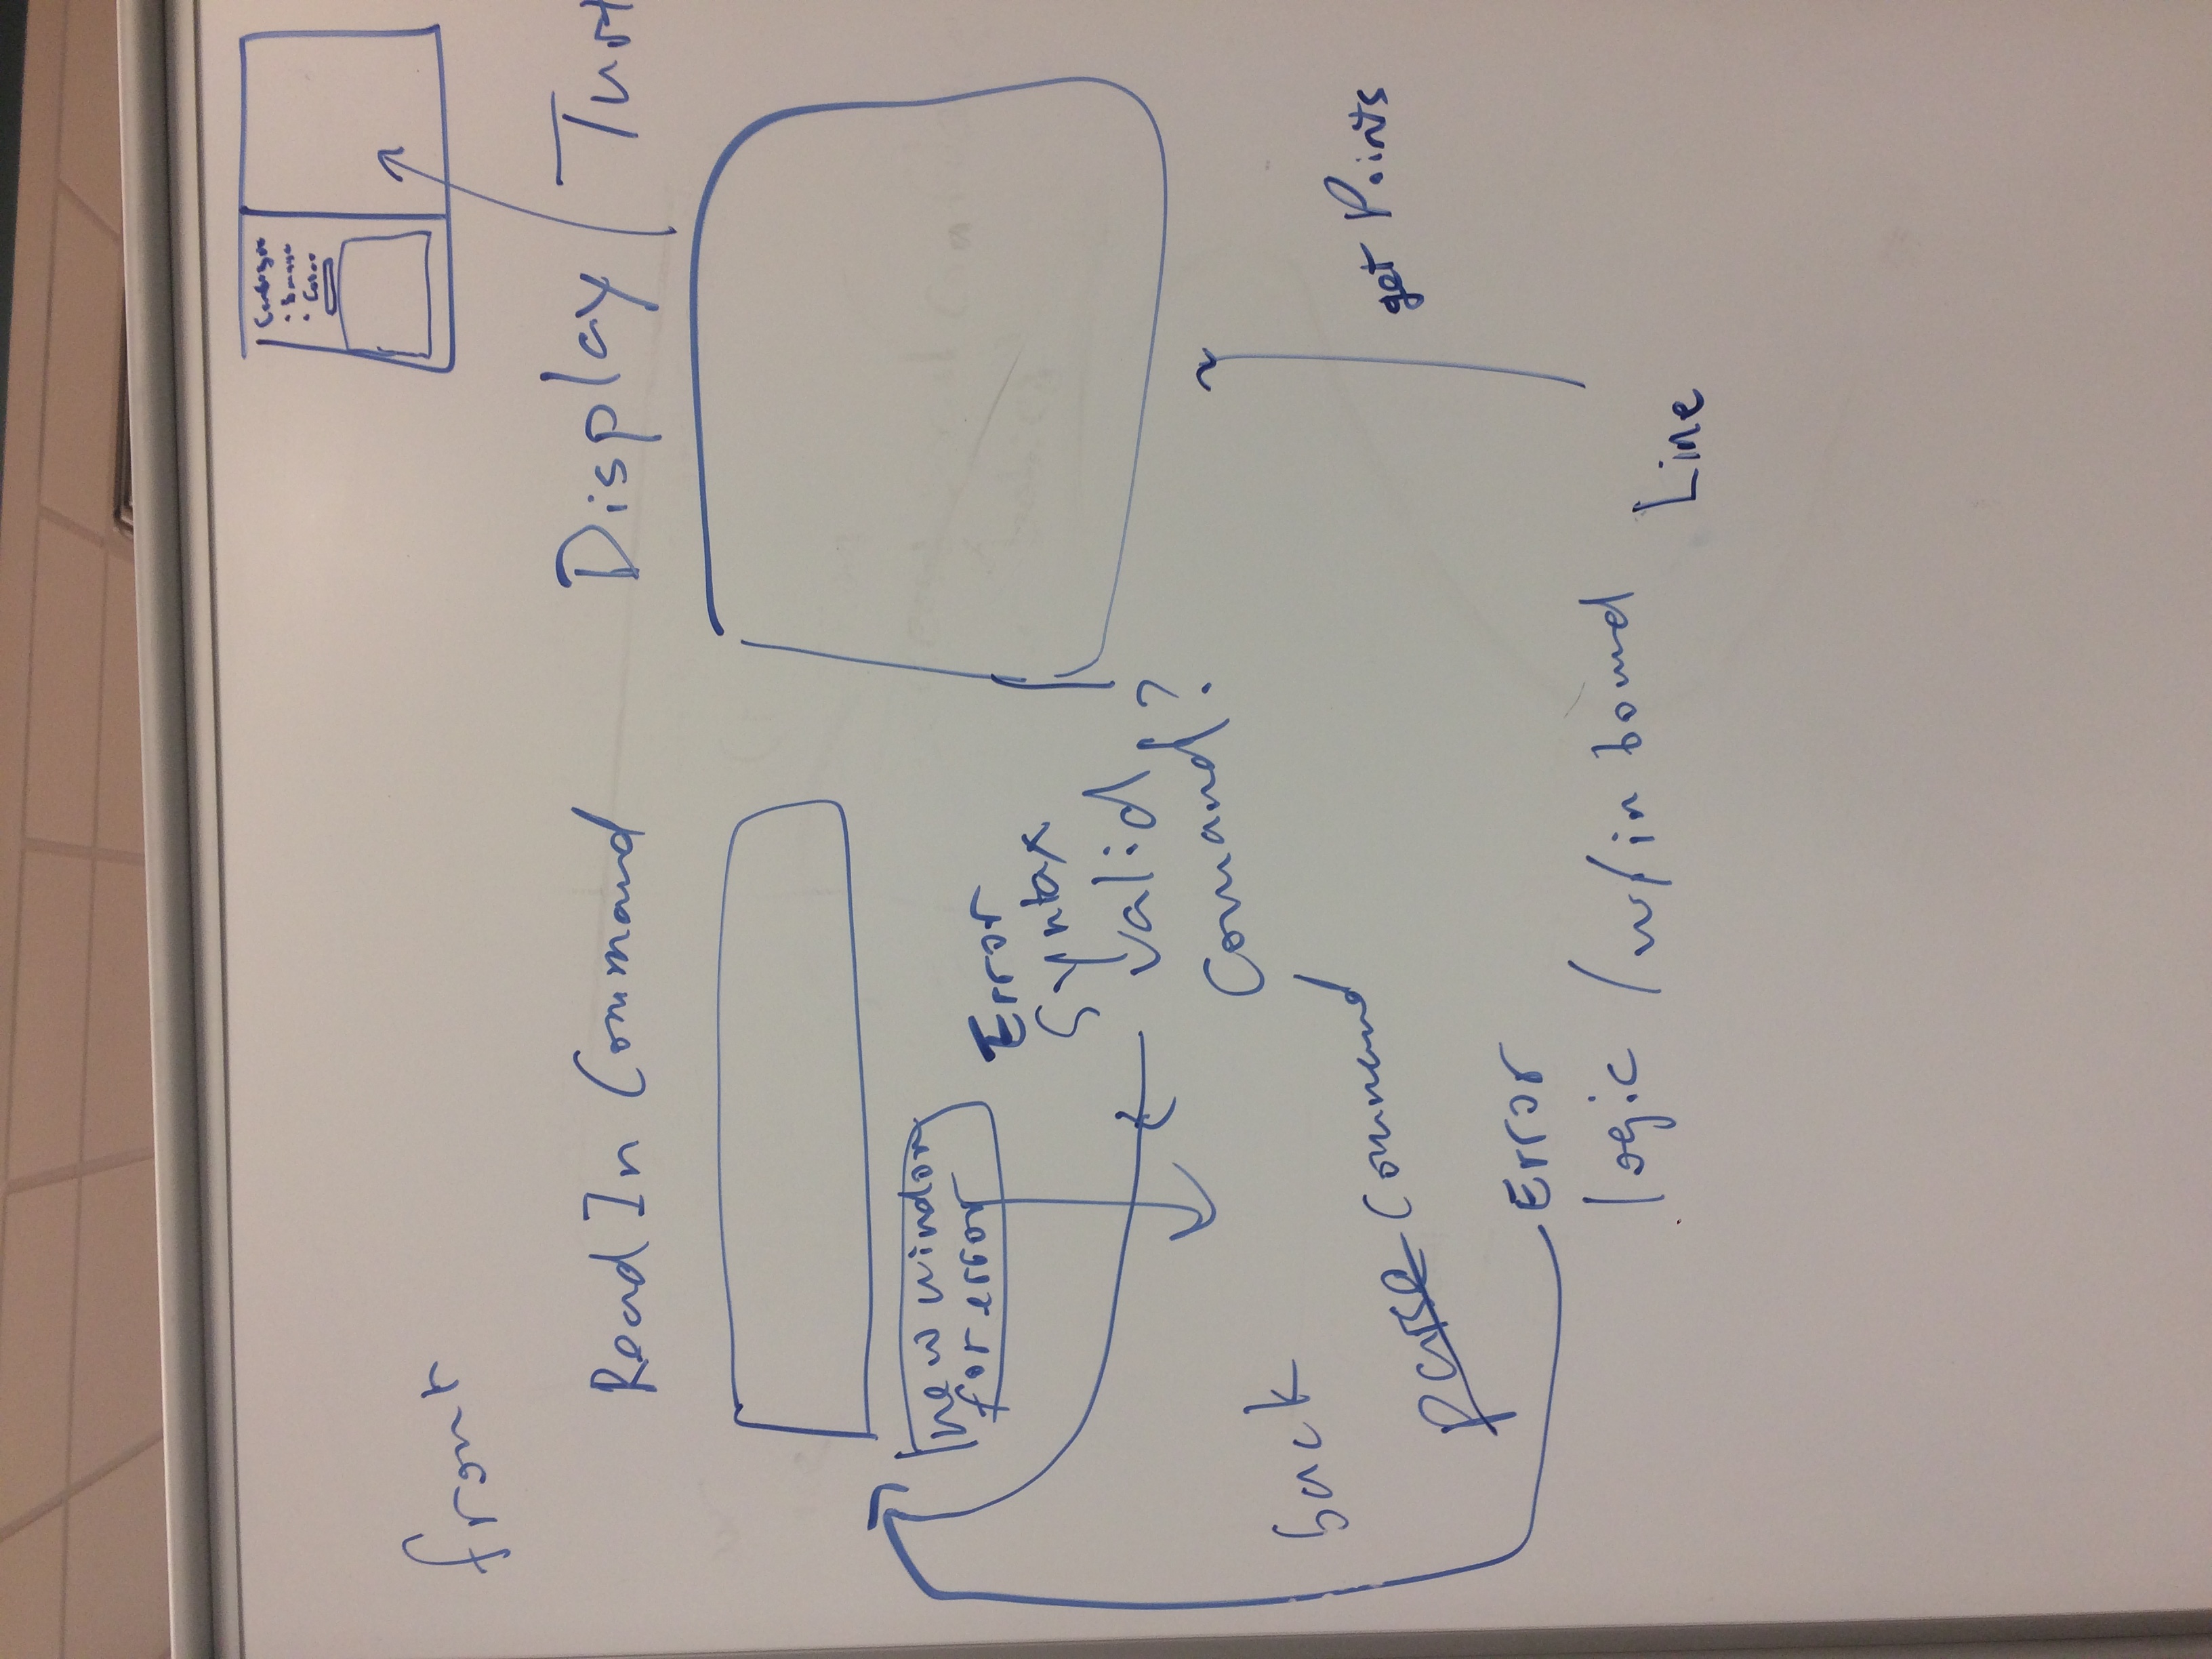 Configure
Image
Color
front
Read In Command
Display Turt
new window
for error
Error
Syntax
valid
Comand?
back
parse Command
get Points
Error
logic / w/in bound
Line